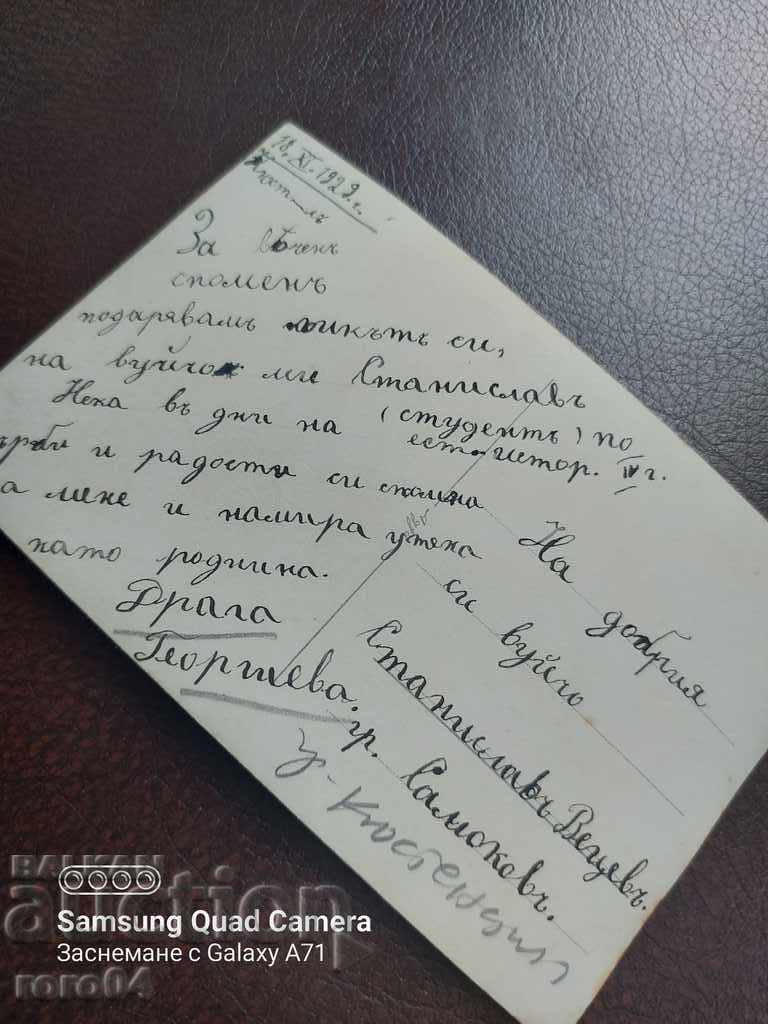 18.XI.1929 г.
Кюст-лъ
За вѣченъ
споменъ
подарявамъ ликътъ си,
на вуйчо ми Станиславъ
(студентъ) по
ест-истор. IV г.
Нека въ дни на
и радости си спомня
мене и намира утеха
като роднина.
Драга
Георгиева.
На добрия
си вуйчо
Станиславъ Вецевъ.
гр. Самоковъ.
у-Кюстендил
BALKAN
auction
roro04
Samsung Quad Camera
Заснемане с Galaxy A71